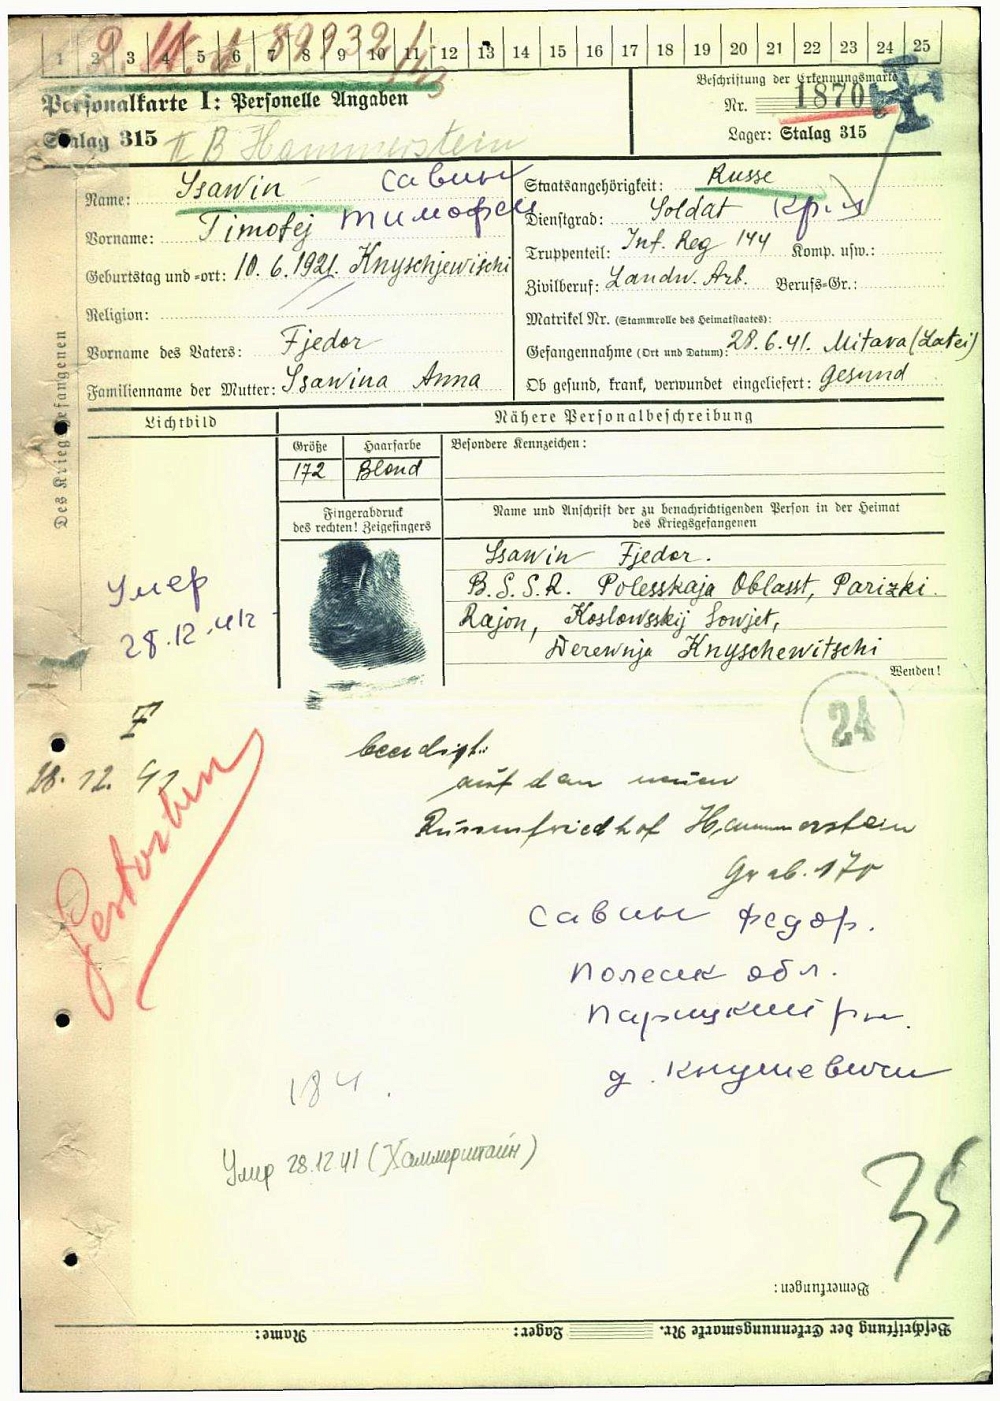 1 2 3 4 5 6 7 8 9 10 11 12 13 14 15 16 17 18 19 20 21 22 23 24 25
Personalkarte I: Personelle Angaben
Stalag 315
II B Hammerstein
Beschriftung der Erkennungsmarke
Nr. 1870
Lager: Stalag 315
Des Kriegsgefangenen
Name: Ssawin Савин
Vorname: Timofej Тимофей
Geburtstag und -ort: 10.6.1921. Knyschjewischi
Religion:
Vorname des Vaters: Fjedor
Familienname der Mutter: Ssawina Anna
Staatsangehörigkeit: Russe
Dienstgrad: Soldat
Truppenteil: Inf. Reg 144 Komp. usw.:
Zivilberuf: Landw. Arb. Berufs-Gr.:
Matrikel Nr. (Stammrolle des Heimatstaates):
Gefangennahme (Ort und Datum): 28.6.41. Mitava (Latei)
Ob gesund, krank, verwundet eingeliefert: Gesund
Lichtbild
Nähere Personalbeschreibung
Größe Haarfarbe Besondere Kennzeichen:
172 Blond
Fingerabdruck
des rechten! Zeigefingers
Name und Anschrift der zu benachrichtigenden Person in der Heimat
des Kriegsgefangenen
Ssawin Fjedor.
B.S.S.R. Polesskaja Oblasst, Parizki.
Rajon, Koslowsskij Sowjet,
Derewnja Knyschewitschi
Wenden!
Умер
28.12.41г
24
F
28.12.41
Gestorben
beerdigt:
auf dem neuen
Russenfriedhof Hammerstein
Grab. 170
Савин Федор.
Полеск обл.
Парицкий рн.
д. Кнушевичи
184.
Умер 28.12.41 (Хаммерштайн)
35
Bemerkungen:
Beschriftung der Erkennungsmarke Nr. Lager: Name: